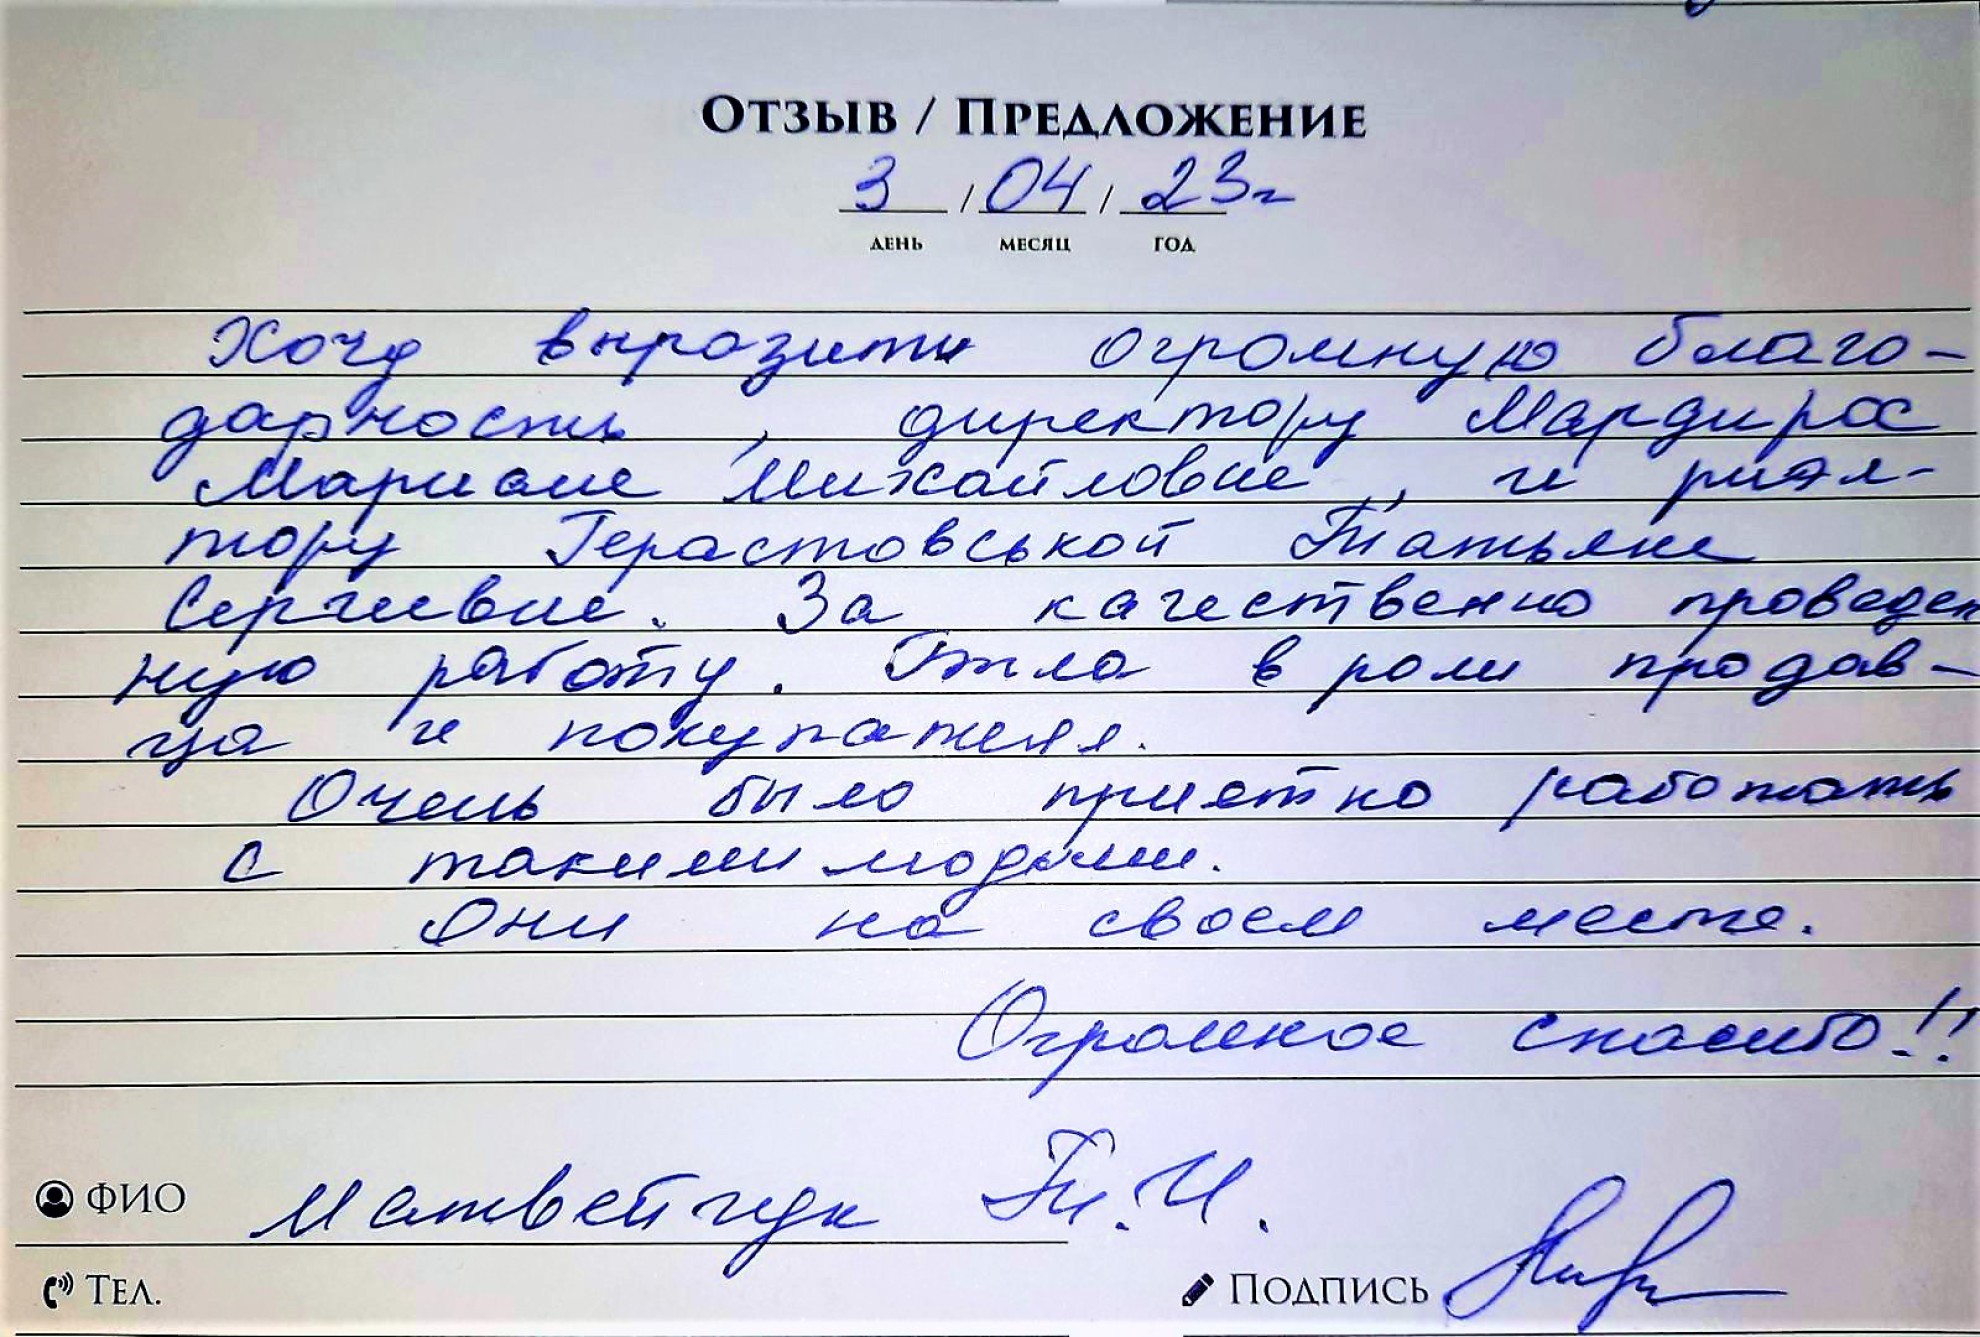 ОТЗЫВ / ПРЕДЛОЖЕНИЕ
3 / 04 / 23г
ДЕНЬ МЕСЯЦ ГОД
Хочу выразить огромную благо-
дарность, директору Мардирос
Мариане Михайловне, и риэл-
тору Герастовськой Татьяне
Сергиевне. За качественно проведен
ную работу. Была в роли продав-
ца и покупателя.
Очень было приятно работать
с такими людьми.
Они на своем месте.
Огромное спасибо!!
ФИО Матвейчук Т.И.
ТЕЛ.
ПОДПИСЬ